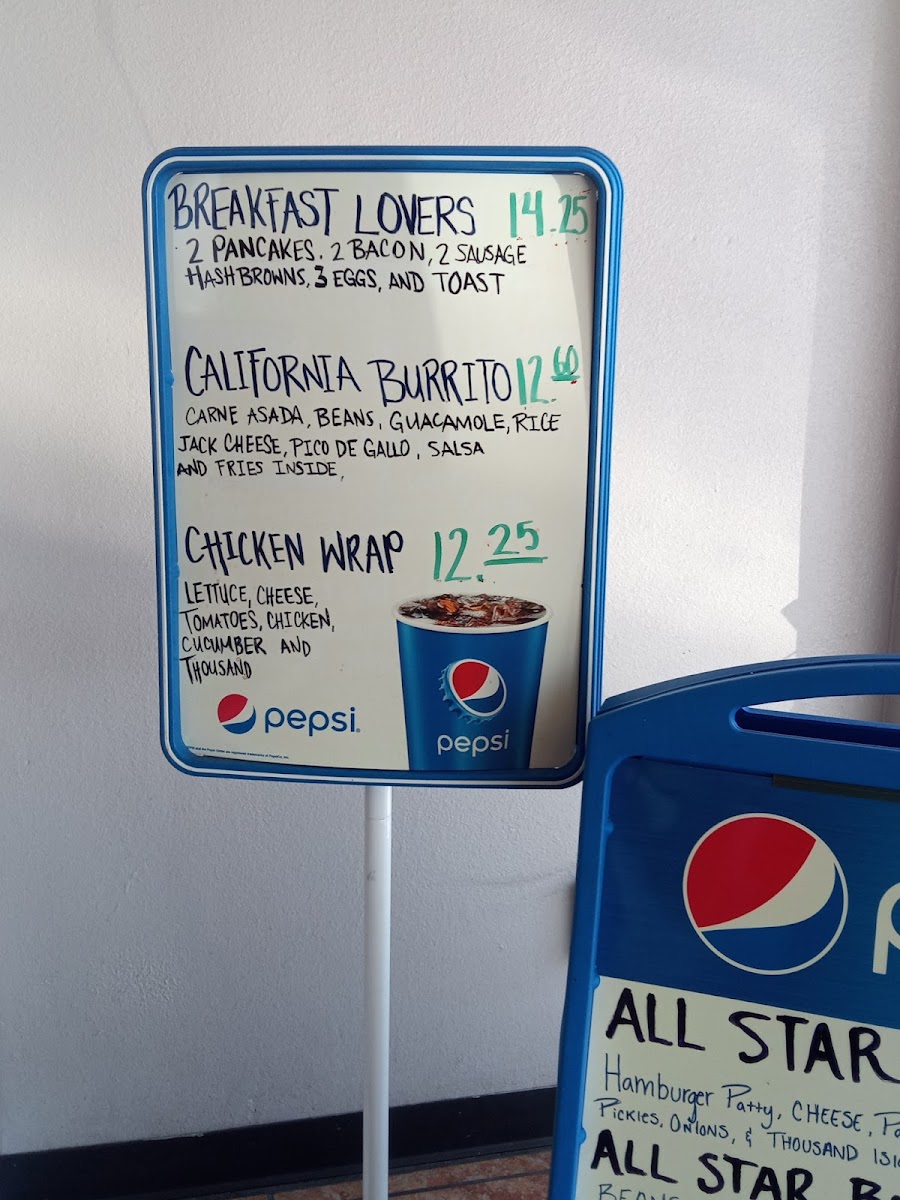 BREAKFAST LOVERS 14.25
2 PANCAKES. 2 BACON, 2 SAUSAGE
HASHBROWNS, 3 EGGS, AND TOAST
CALIFORNIA BURRITO 12.60
CARNE ASADA, BEANS, GUACAMOLE, RICE
JACK CHEESE, PICO DE GALLO, SALSA
AND FRIES INSIDE,
CHICKEN WRAP 12.25
LETTUCE, CHEESE,
TOMATOES, CHICKEN,
CUCUMBER AND
THOUSAND
pepsi
pepsi
ALL STAR
Hamburger Patty, CHEESE,
Pickles, Onions, & THOUSAND
ALL STAR
BEANS